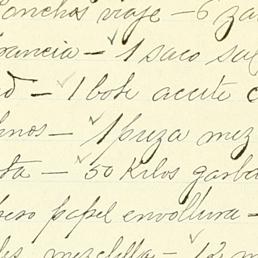 Ponchos viaje - 6 za
Francia - 1 saco sal
d - 1 bote aceite c
nos - 1 pieza mez
ta - 50 Kilos garba
peso papel envoltura -
les mezclilla - 12 m